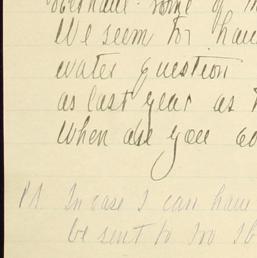 some of
We seem to have
water question
as last year as
When are you
P.S. In case I can have
be sent to